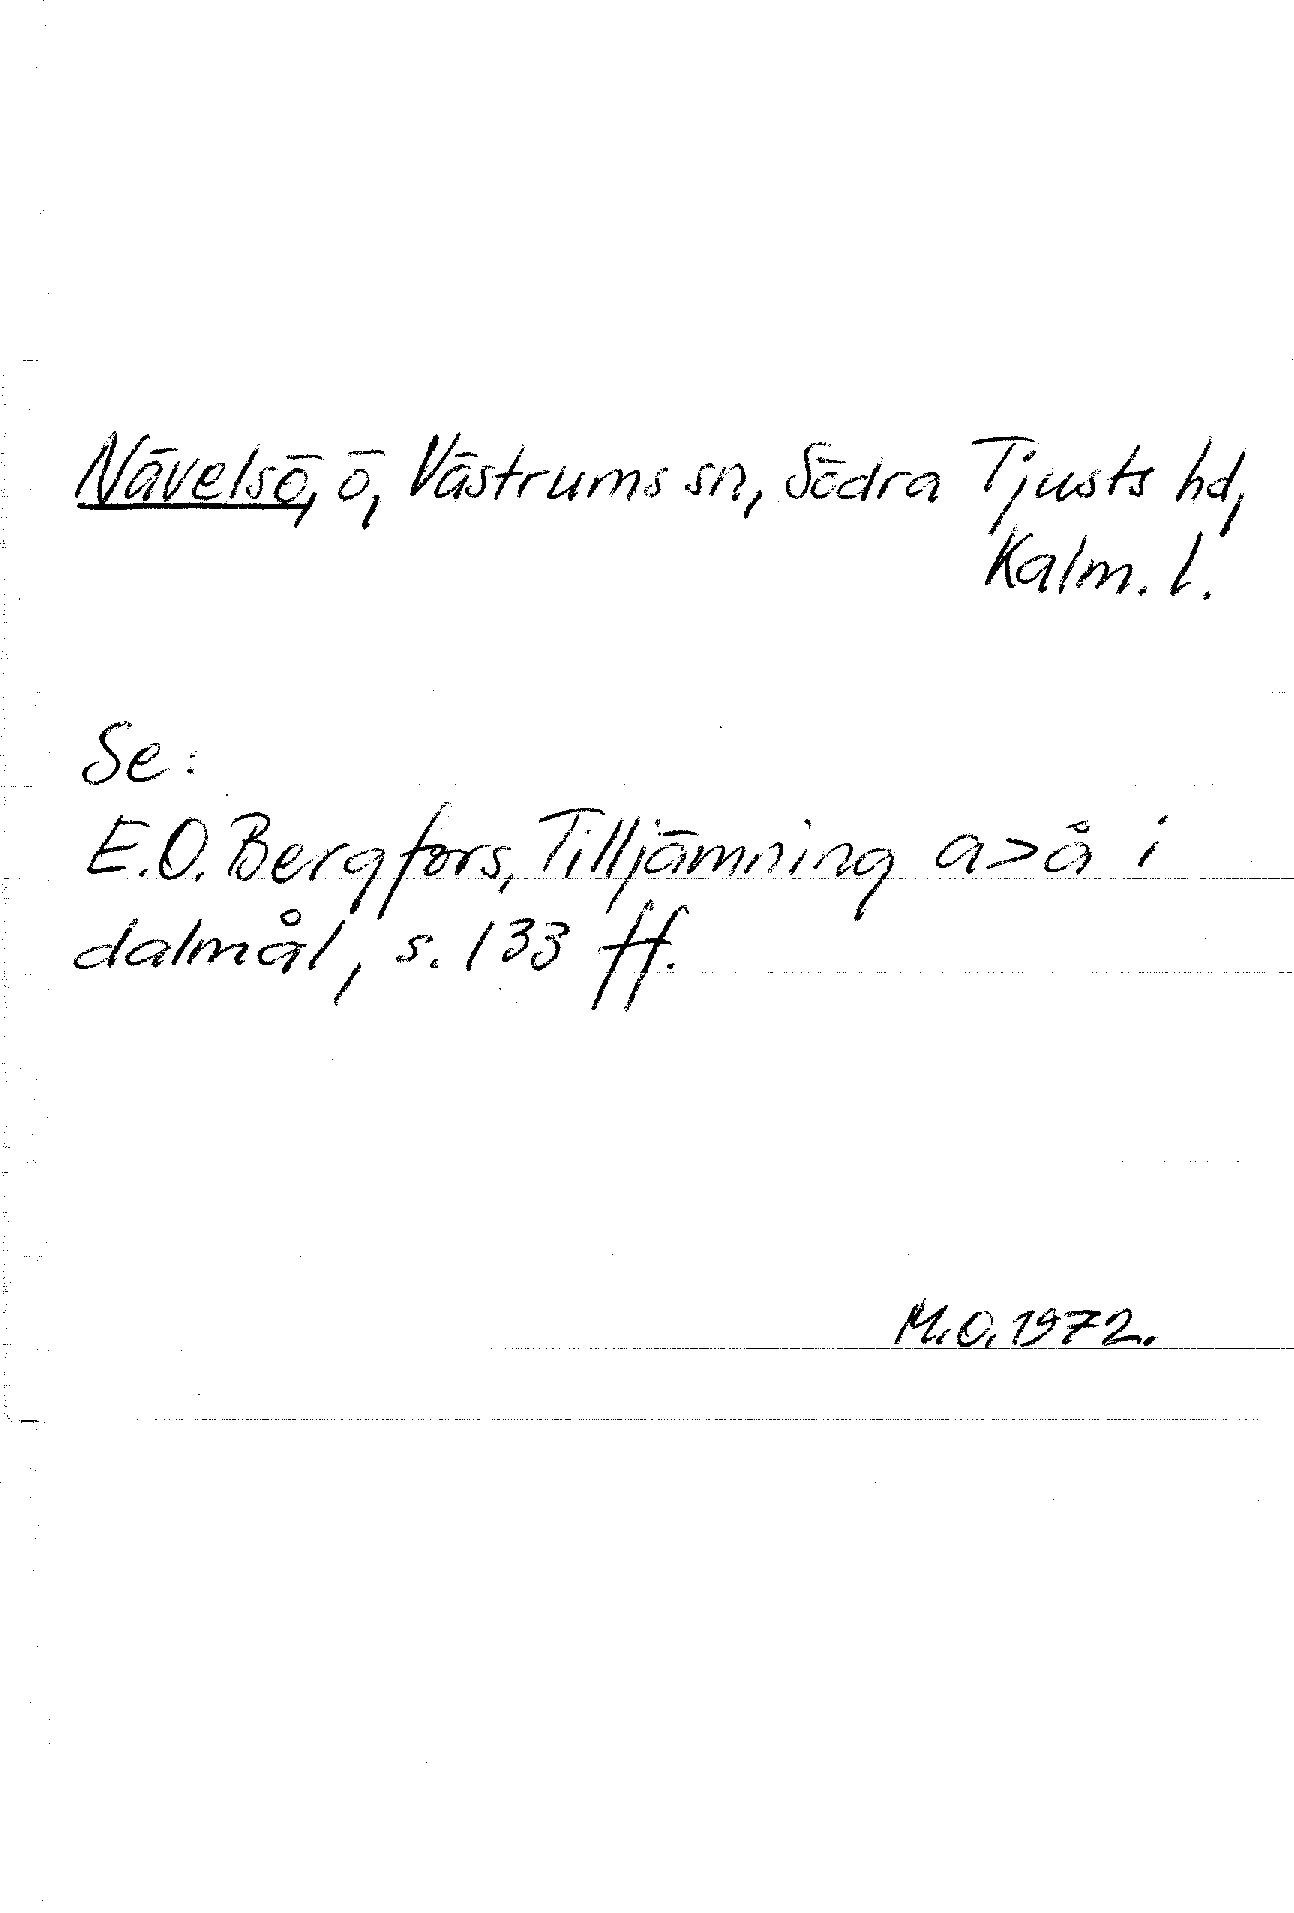 Nävelsö, ö, Västrums sn, Södra Tjusts hd,
Kalm. l.
Se:
E.O. Bergfors, Tilljämning a>å i
dalmål, s. 133 ff.
M.O. 1972.